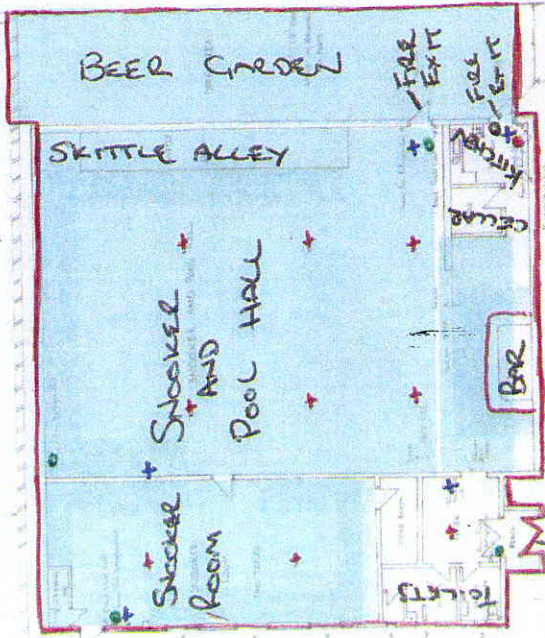 BEER GARDEN
FIRE EXIT
FIRE EXIT
SKITTLE ALLEY
KITCHEN
CELLAR
SNOOKER
AND
POOL HALL
BAR
SNOOKER
ROOM
TOILETS